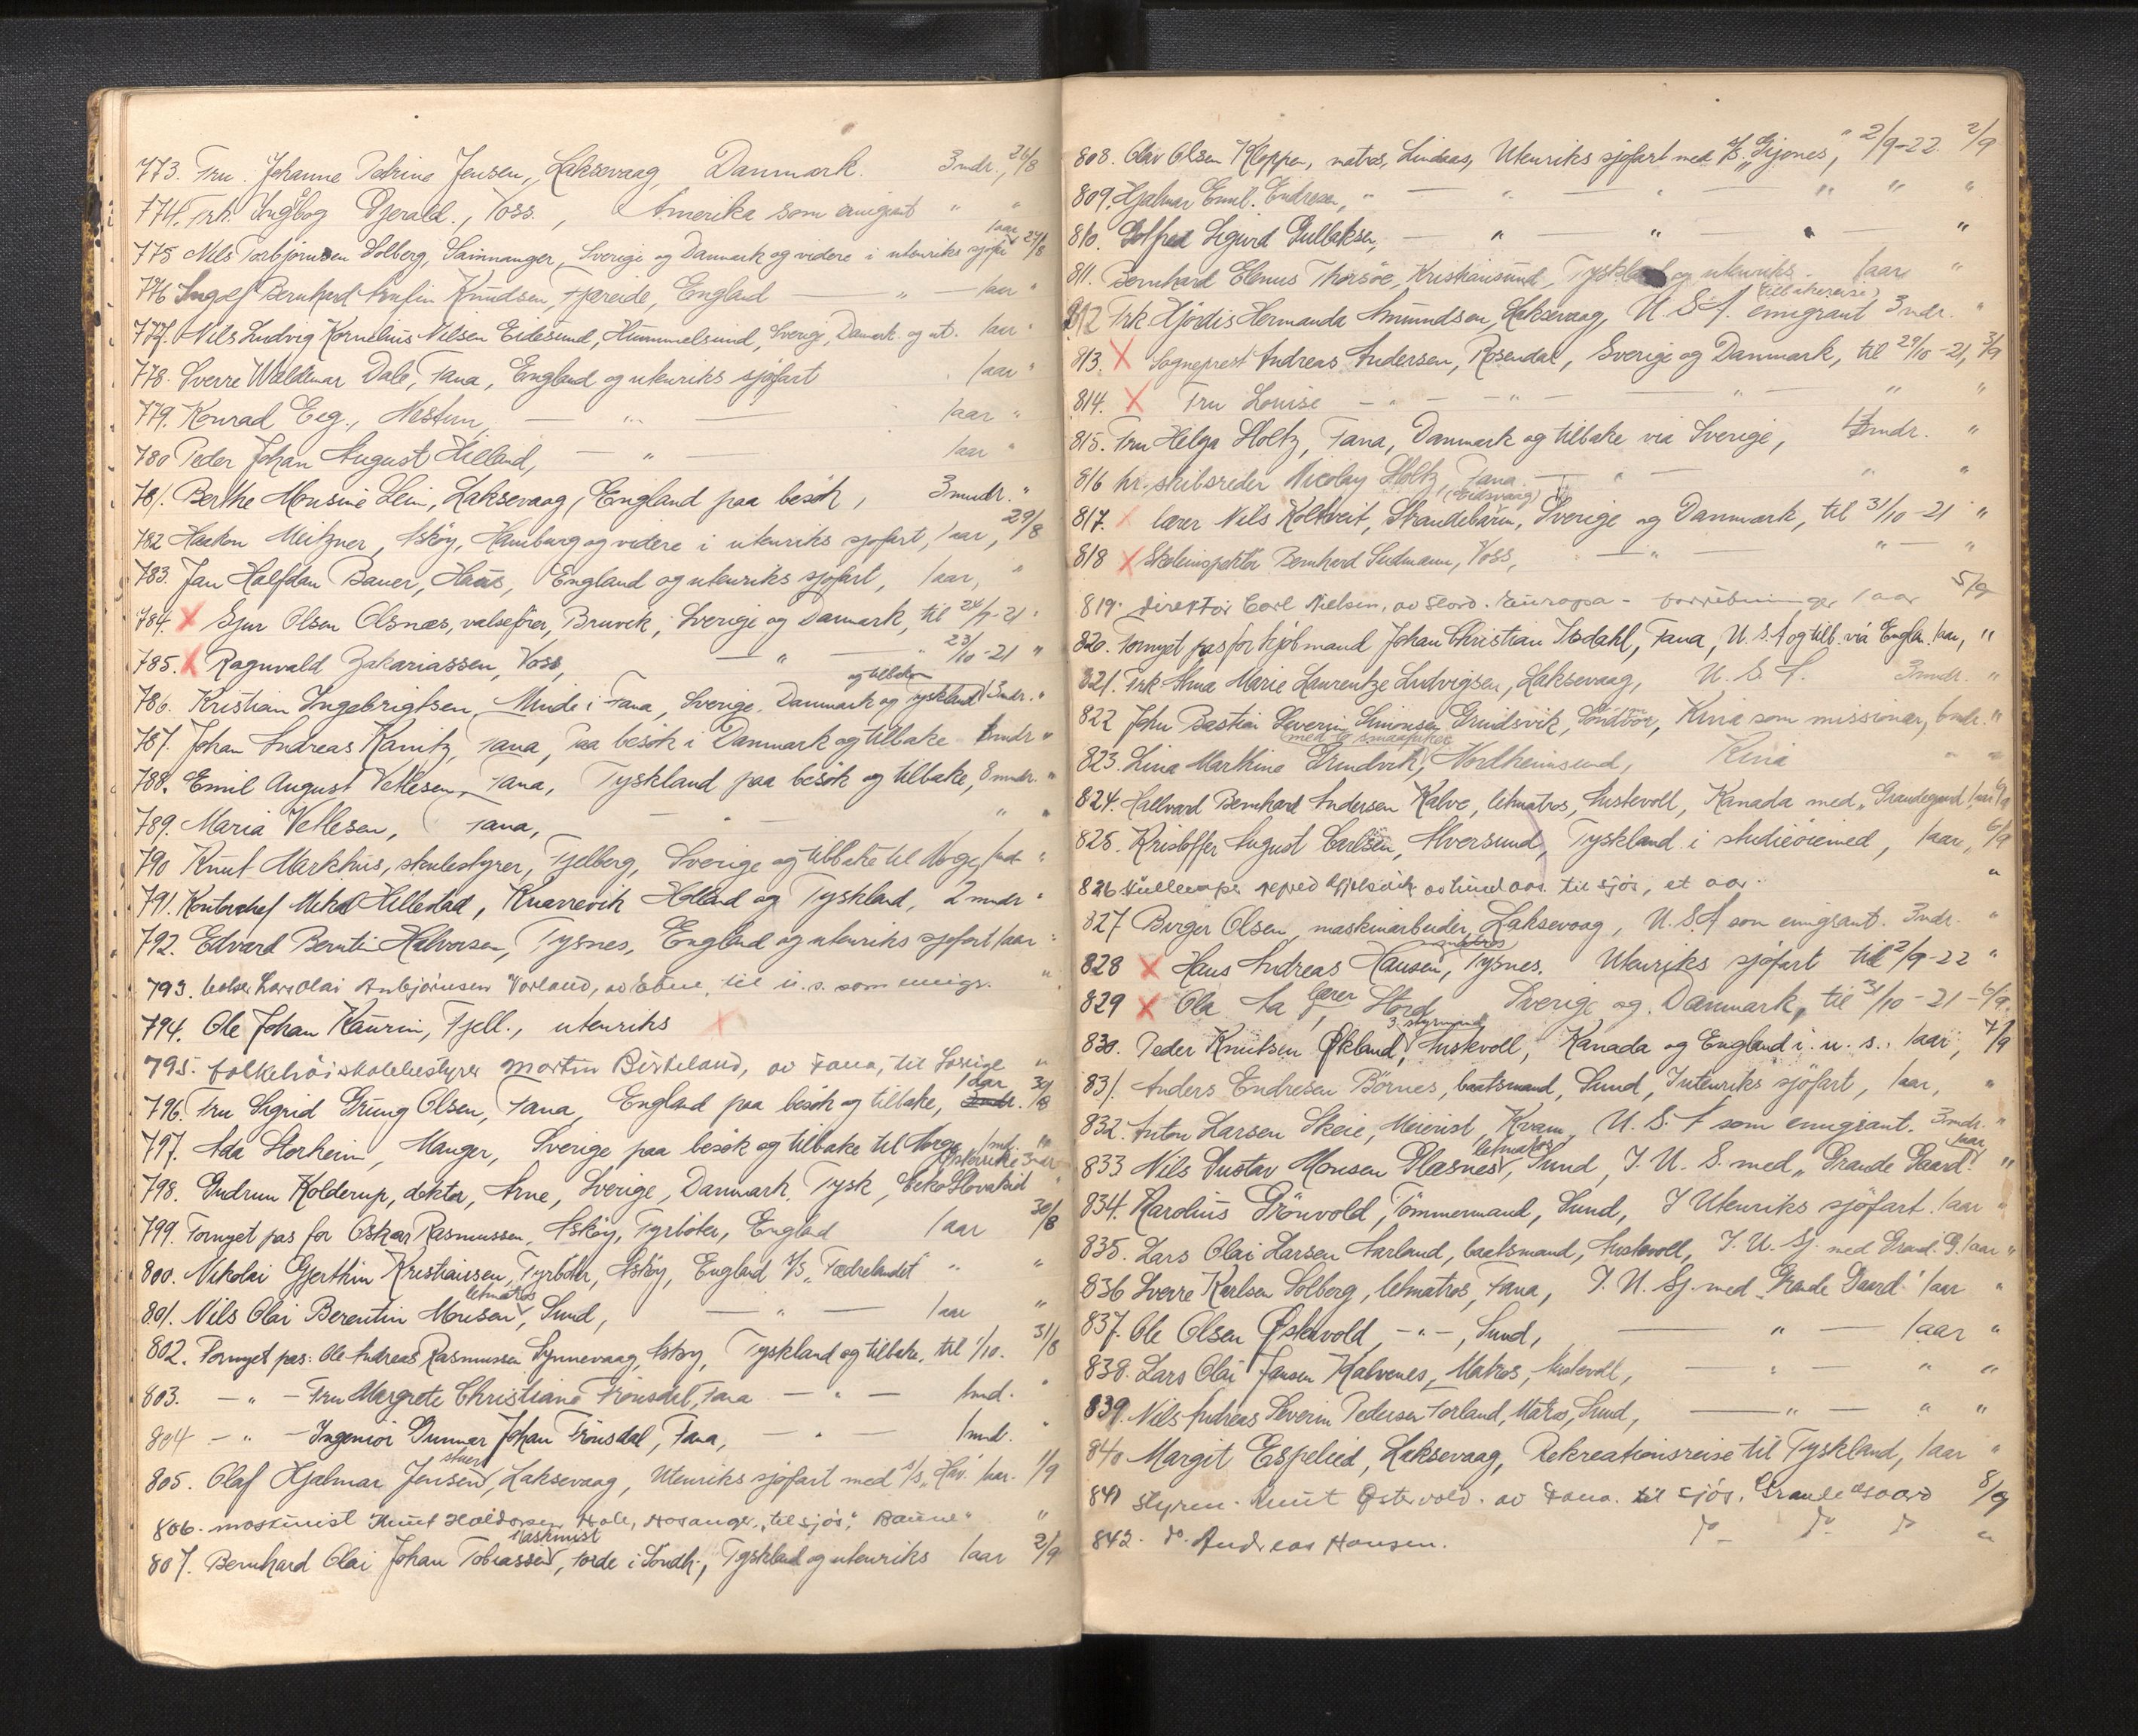 773. Fru. Johanne Petrine Jensen, Laksevaag, Danmark. 3 mdr., 26/8
774. Frk. Ingbog Gjerald., Voss., Amerika som emigrant " "
775 Nils Torbjørnsen Solberg, Samnanger, Sverige og Danmark og videre i utenriks sjøfart 1 aar 27/8
776 Ingolf Bernhard Knudsen, Fjæreide, England — " — 1 aar "
777. Nils Ludvig Kornelius Nilsen Eidesund, Hummelsund, Sverig, Danmark og ut. 1 aar "
778. Sverre Waldemar Dale, Fana, England og utenriks sjøfart 1 aar "
779. Konrad Eeg., Nestun, — " — 1 aar "
780 Peder Johan August Hilland, — " — 1 aar "
781. Berthe Monsine Lein, Laksevaag, England paa besøk, 3 mndr. "
782 Haakon Meitzner, Askøy, Hamburg og videre i utenriks sjøfart, 1 aar, 29/8
783. Jan Halfdan Bauer, Haus, England og utenriks sjøfart, 1 aar, "
784. X Sjur Olsen Olsnæs, Bruvik, Sverige og Danmark, til 24/9-21 "
785. X Ragnvald Zakariassen, Voss, — " — 23/10-21 "
786. Kristian Ingebrigtsen, Minde i Fana, Sverige, Danmark og Tyskland og tilbake 3 mdr. "
787. Johan Andreas Kanitz, Fana, Paa besøk i Danmark og tilbake mndr "
788. Emil August Vetlesen, Fana, Tyskland paa besøk og tilbake, 8 mndr. "
789. Maria Vetlesen, Fana, — " — " "
790 Knut Markhus, skolestyrer, Fjelberg, Sverige og tilbake til Norge, 1 md. "
791. Kontorchef Hillestad, Knarrevik Holland og Tyskland, 2 mndr "
792. Edvard Berntin Halvorsen, Tysnes, England og utenriks sjøfart 1 aar "
793. Lars Olai Anbjørnsen Vorland, av Etne, til u.s. som emigr. "
794. Ole Johan Kaurin, Fjell., utenriks X
795. folkehøiskolebestyrer Martin Birkeland, av Fana, til Sverige "
796. Fru Sigrid Grung Olsen, Fana, England paa besøk og tilbake, 1 aar 30/8
797. Ada Storheim, Manger, Sverige paa besøk og tilbake til Norge 1 md. "
798. Gudrun Kolderup, doktor, Arne, Sverige, Danmark, Tysk, Østerrike 3 mdr "
799. Fornyet pas for Oskar Rasmussen, Askøy, Fyrbøter, England 1 aar 30/8
800. Nikolai Gjerthin Kristiansen, Fyrbøter, Askøy, England S/S "Fædrelandet" " "
801. Nils Olai Berentin Monsen, letmatros Sund, — " — 1 aar "
802. Fornyet pas: Ole Andreas Rasmussen Synnevaag, Askøy, Tyskland og tilbake, til 1/10. 31/8
803. — " — Fru Margrete Christiane Frønsdal, Fana — " — 1 md. "
804 — " — Ingeniør Gunnar Johan Frønsdal, Fana, — " — 1 mnd. "
805. Olaf Hjalmar Jensen, stuert Laksevaag, Utenriks sjøfart med S/S "Hav" 1 aar. 1/9
806. maskinist Knut Haldorsen Hole, Hosanger, "til sjøs", "Baune" "
807. Bernhard Olai Johan Tobiassen, Maskinist Førde i Søndh., Tyskland og utenriks 1 aar 2/9
808. Olav Olsen Kloppen, matros, Lindaas, Utenriks sjøfart med S/S. "Gijones," 2/9-22. 2/9
809. Hjalmar Emil. Endresen, " — " — " — " " "
810. Golfred Sigurd Gullaksen, — " — " — " — "
811. Bernhard Elenus Thorsøe, Kristiansund, Tyskland og utenriks. 1 aar "
812 Frk. Hjørdis Hermanda Amundsen, Laksevaag, U.S.A. emigrant (tilbakereise) 3 mdr. "
813. X Sogneprest Andreas Andersen, Rosendal, Sverige og Danmark, til 29/10-21, 3/9
814. X Fru Louise — " — " — " — " "
815. Fru Helga Holtz, Fana, Danmark og tilbake via Sverige, mdr. "
816 hr. skibsreder Nicolay Holtz, Fana — " — " "
817. X lærer Nils Koltveit, Strandebarm, (Eidsvaag) Sverige og Danmark, til 31/10-21 "
818 X Skoleinspektør Bernhard Sudmann, Voss, — " — " — "
819. Direktør Carl Nielsen, av Stord. Europa - 1 aar 5/9
820. Fornyet pas for kjøbmand Johan Christian Isdahl, Fana, U.S.A og tilb. via Engla. 1 aar, "
821. Frk Alma Marie Laurentze Ludvigsen, Laksevaag, U.S.A. 3 mdr. "
822 John Bastian Severin Simonsen Grindsvik, Kina som missionær, 6 mdr. "
823. Lina Marthine Grindvik, Nordheimsund, Kina " "
824. Hallvard Bernhard Andersen Kalve, letmatros, Austevoll, Kanada med "Grandegaard 1 aar 6/9
825. Kristoffer August Carlsen, Alversund, Tyskland i studieøiemed, 1 aar, 6/9
826 til sjøs, et aar. "
827 Birger Olsen, maskinarbeider, Laksevaag, U.S.A som emigrant. 3 mdr. "
828 X Hans Andreas Hansen, matros Tysnes. Utenriks sjøfart til 2/9-22 "
829 X Ola Aa lærer, Stord, Sverige og Danmark, til 31/10-21 - 6/9.
830. Peder Knutsen Økland, 3. styrmand Austevoll, Kanada og England i. u. s.. 1 aar, 7/9
831. Anders Endresen Børnes, baatsmand, Sund, I utenriks sjøfart, 1 aar, "
832. Anton Larsen Skeie, Meierist, Kvam, U.S.A som emigrant. 3 mdr. "
833 Nils Gustav Monsen Glesnes, letmatros Sund, I. U. S. med "Grande Gaard." 1 aar "
834. Karolius Grönvold, Tömmermand, Sund, I Utenriks sjöfart. 1 aar "
835. Lars Olai Larsen Aarland, baatsmand, Austevoll, I. U. Sj. med Grand. G. 1 aar "
836 Sverre Karlsen Solberg, letmatros, Fana, I. U. Sj. med Grande Gaard 1 aar "
837. Ole Olsen Østervold, — " —, Sund, — " — 1 aar "
838. Lars Olai Jansen Kalvenes, Matros, Austevoll, — " — " "
839. Nils Andreas Severin Pedersen Forland, Matros, Sund, — " — " "
840 Margit Espelied, Laksevaag, Rekreationsreise til Tyskland, 1 aar "
841 styrm. Knut Østervold. av Fana. til sjøs. Grande Gaard 8/9
842. do. Andreas Hansen. do do do "